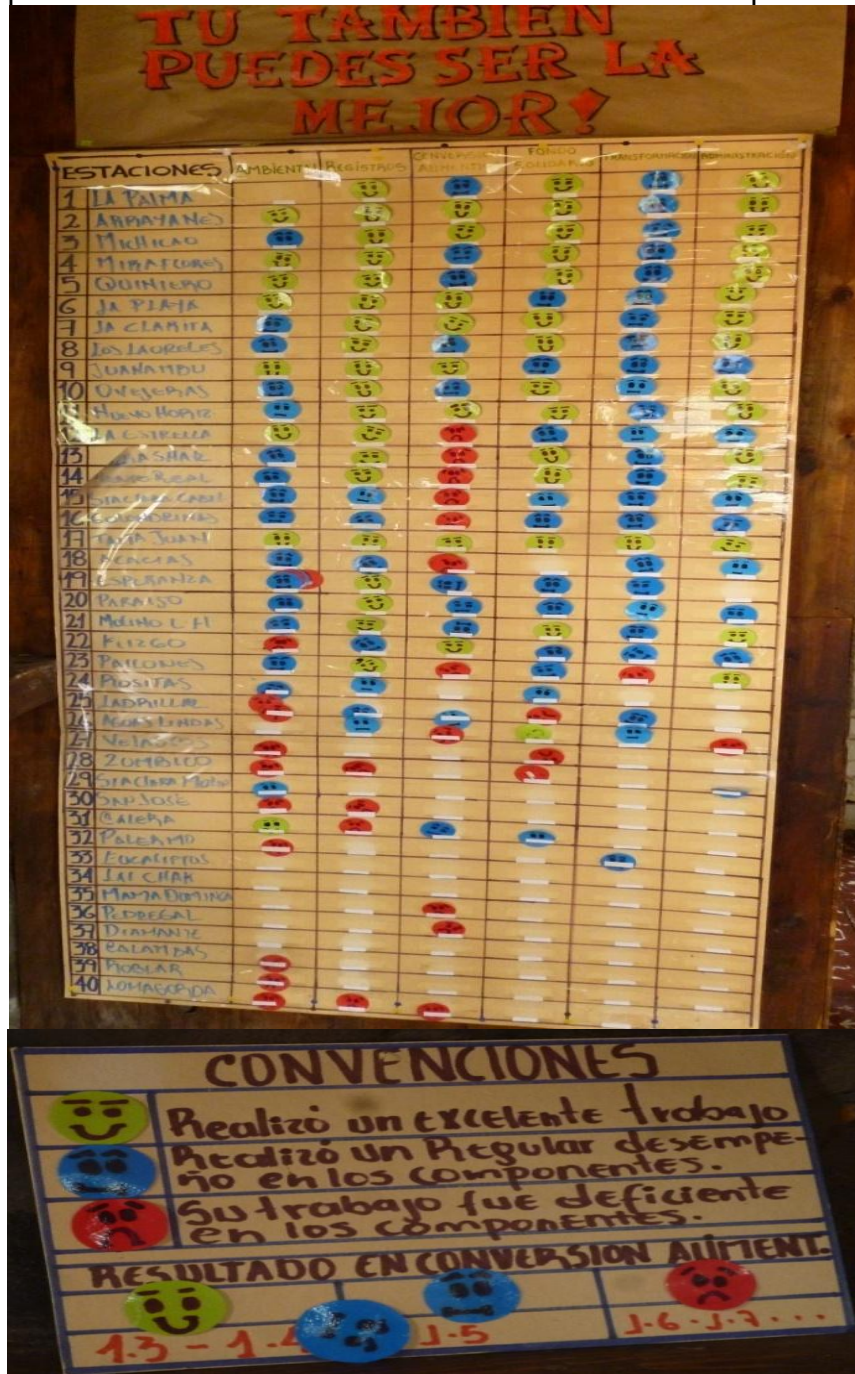 TU TAMBIEN
PUEDES SER LA
MEJOR!
ESTACIONES AMBIENTE REGISTROS CONVERSION ALIMENT. FONDO SOLIDAR. TRANSFORMACION ADMINISTRACION
1 LA PALMA
2 ARRAYANES
3 MICHICAO
4 MIRAFLORES
5 QUINTERO
6 LA PLAYA
7 LA CLARITA
8 LOS LAURELES
9 JUANAMBU
10 OVEJERAS
NUEVO HORIZ
LA ESTRELLA
13
14 REAL
15
16 GOLONDRINAS
17 TAITA JUAN
18 ACACIAS
19 ESPERANZA
20 PARAISO
21 MOLINO
22
23 PAILONES
24 ROSITAS
25 LADRILLAL
26 AGUAS LINDAS
27
28 ZUMBICO
29
30 SAN JOSE
31 CALERA
32 PALERMO
33 EUCALIPTUS
34
35 MAMA DOMINGA
36 PEDREGAL
37 DIAMANTE
38 CALAMBAS
39 ROBLAR
40 LOMAGORDA
CONVENCIONES
Realizó un excelente trabajo
Realizó un Regular desempe-
ño en los componentes.
Su trabajo fue deficiente
en los componentes.
RESULTADO EN CONVERSION ALIMENT.
1.3 - 1.4 1.5 1.6.1.7...